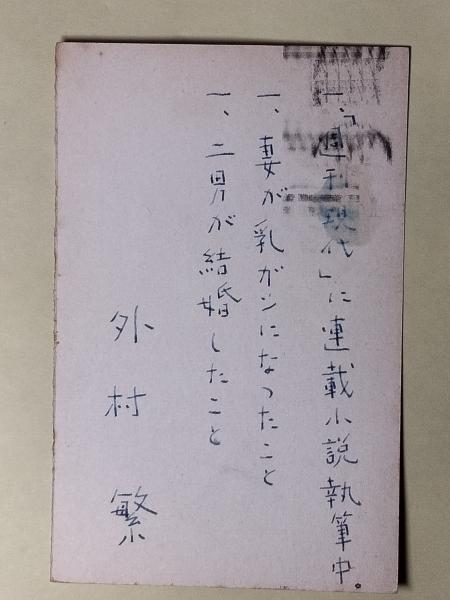 一、「週刊現代」に連載小説執筆中。
一、妻が乳ガンになつたこと
一、二男が結婚したこと
外村繁